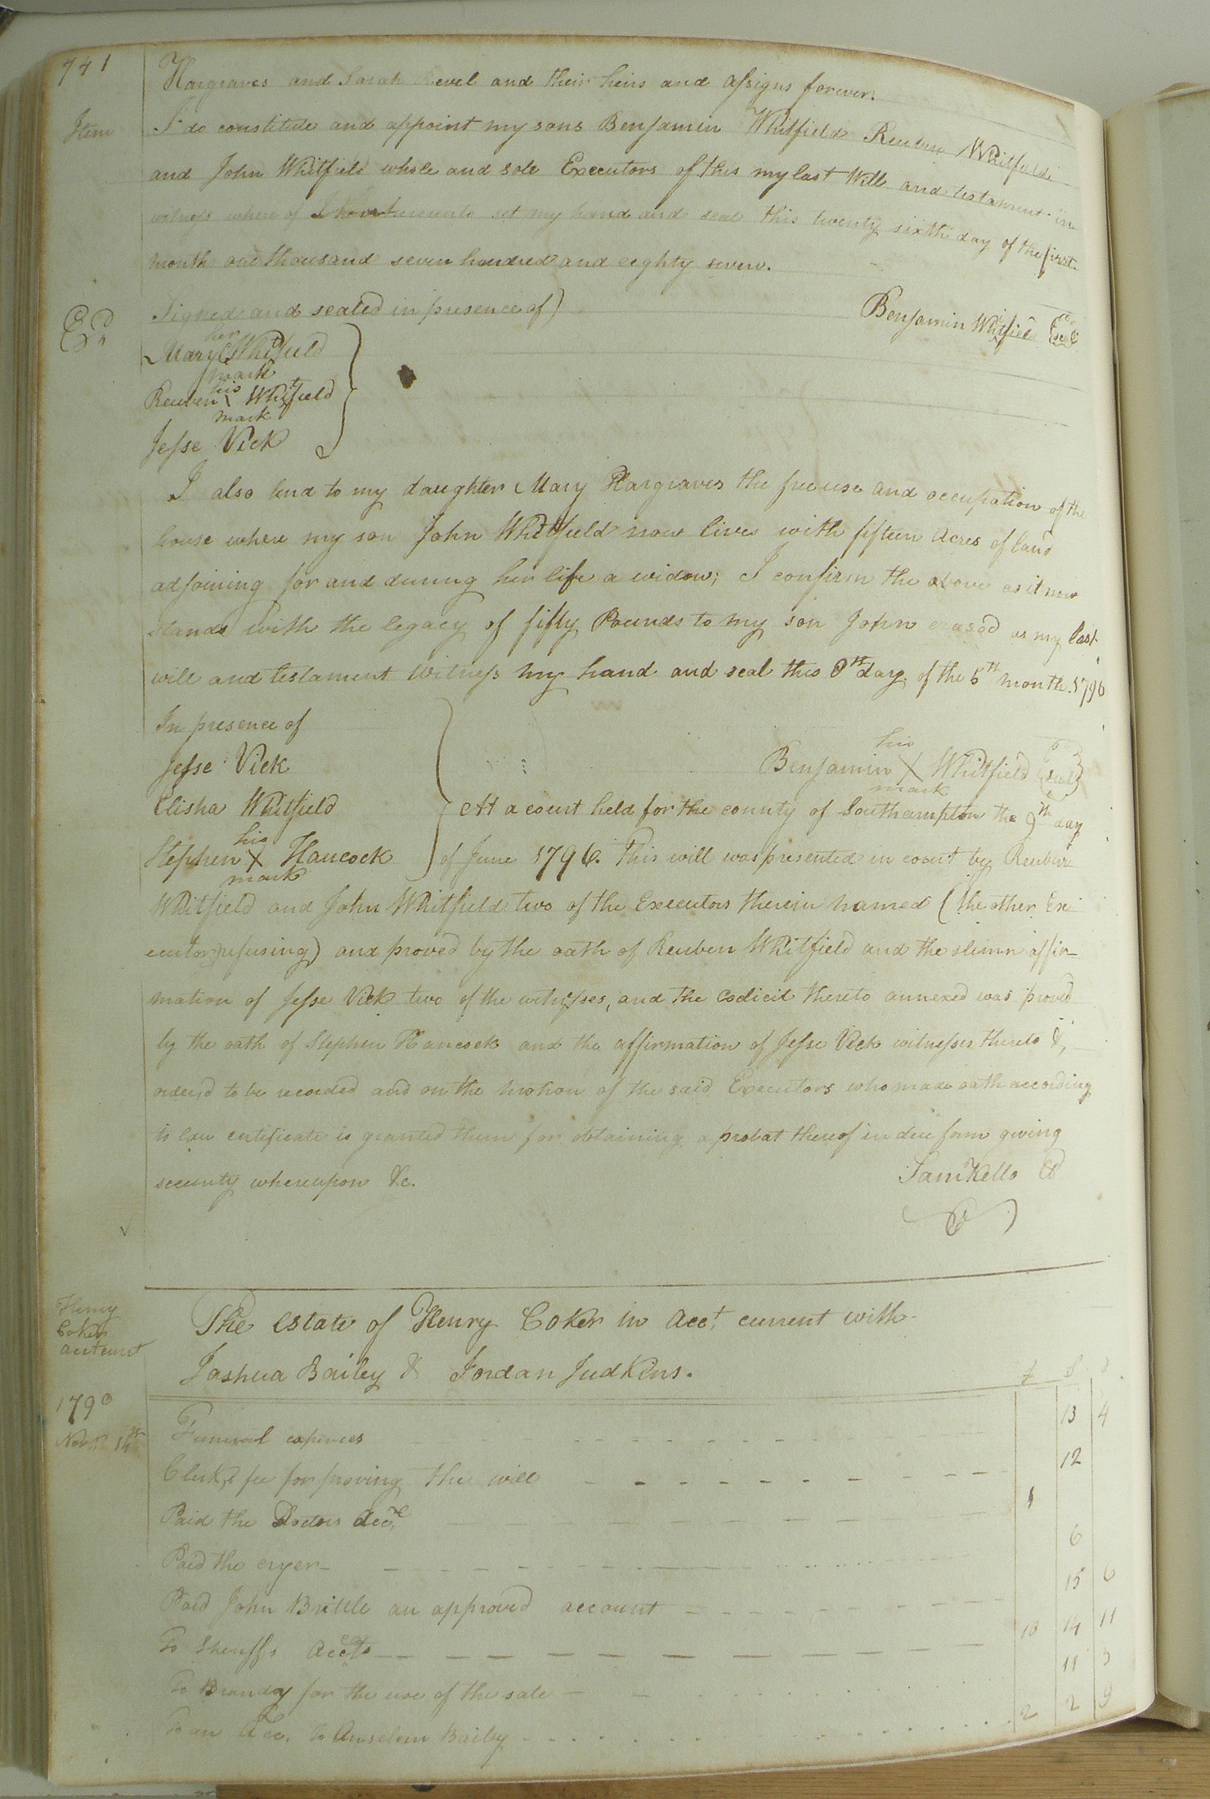 741
Hargraves and Sarah Revel and their heirs and assigns forever.
Item I do constitute and appoint my sons Benjamin Whitfield Reuben Whitfield
and John Whitfield whole and sole Executors of this my last Will and testament in
witness where of I have hereunto set my hand and seal this twenty sixth day of the first
month one thousand seven hundred and eighty seven.
Signed and sealed in presence of)
Benjamin Whitfield Seal
her
Mary Whitfield
mark
his
Reuben X Whitfield
mark
Jesse Vick
I also lend to my daughter Mary Hargraves the free use and occupation of the
house where my son John Whitfield now lives with fifteen Acres of land
adjoining for and during her life a widow; I confirm the above as it now
stands with the legacy of fifty Pounds to my son John erased as my last
will and testament Witness my hand and seal this 8th day of the 6th month 1796
In presence of
Jesse Vick
his
Benjamin X Whitfield {seal}
mark
Elisha Whitfield
his
Stephen X Hancock
mark
At a court held for the county of Southampton the 9th day
of June 1796. This will was presented in court by Reuben
Whitfield and John Whitfield two of the Executors therein named (the other Ex
ecutor refusing) and proved by the oath of Reuben Whitfield and the slemn affir-
mation of Jesse Vick two of the witnesses, and the Codicil thereto annexed was proved
by the oath of Stephen Hancock and the affirmation of Jesse Vick witnesses thereto &
orderd to be recorded and on the motion of the said Executors who made oath according
to law certificate is granted them for obtaining a probat thereof in due form giving
security whereupon &c.
Sam Kello
Henry
Coker
account
The Estate of Henry Coker in Acct. current with
Joshua Bailey & Jordan Judkins.
1790
Funeral expences 13 4
Clerks fee for proving the will 12
Paid the Doctors Acct. 1
Paid the cryer 6
Paid John Brittle an approved account 15 6
To Sheriffs Accts 10 14 11
To Brandy for the use of the sale 11 3
To an Acc. to Anselem Bailey 2 2 9